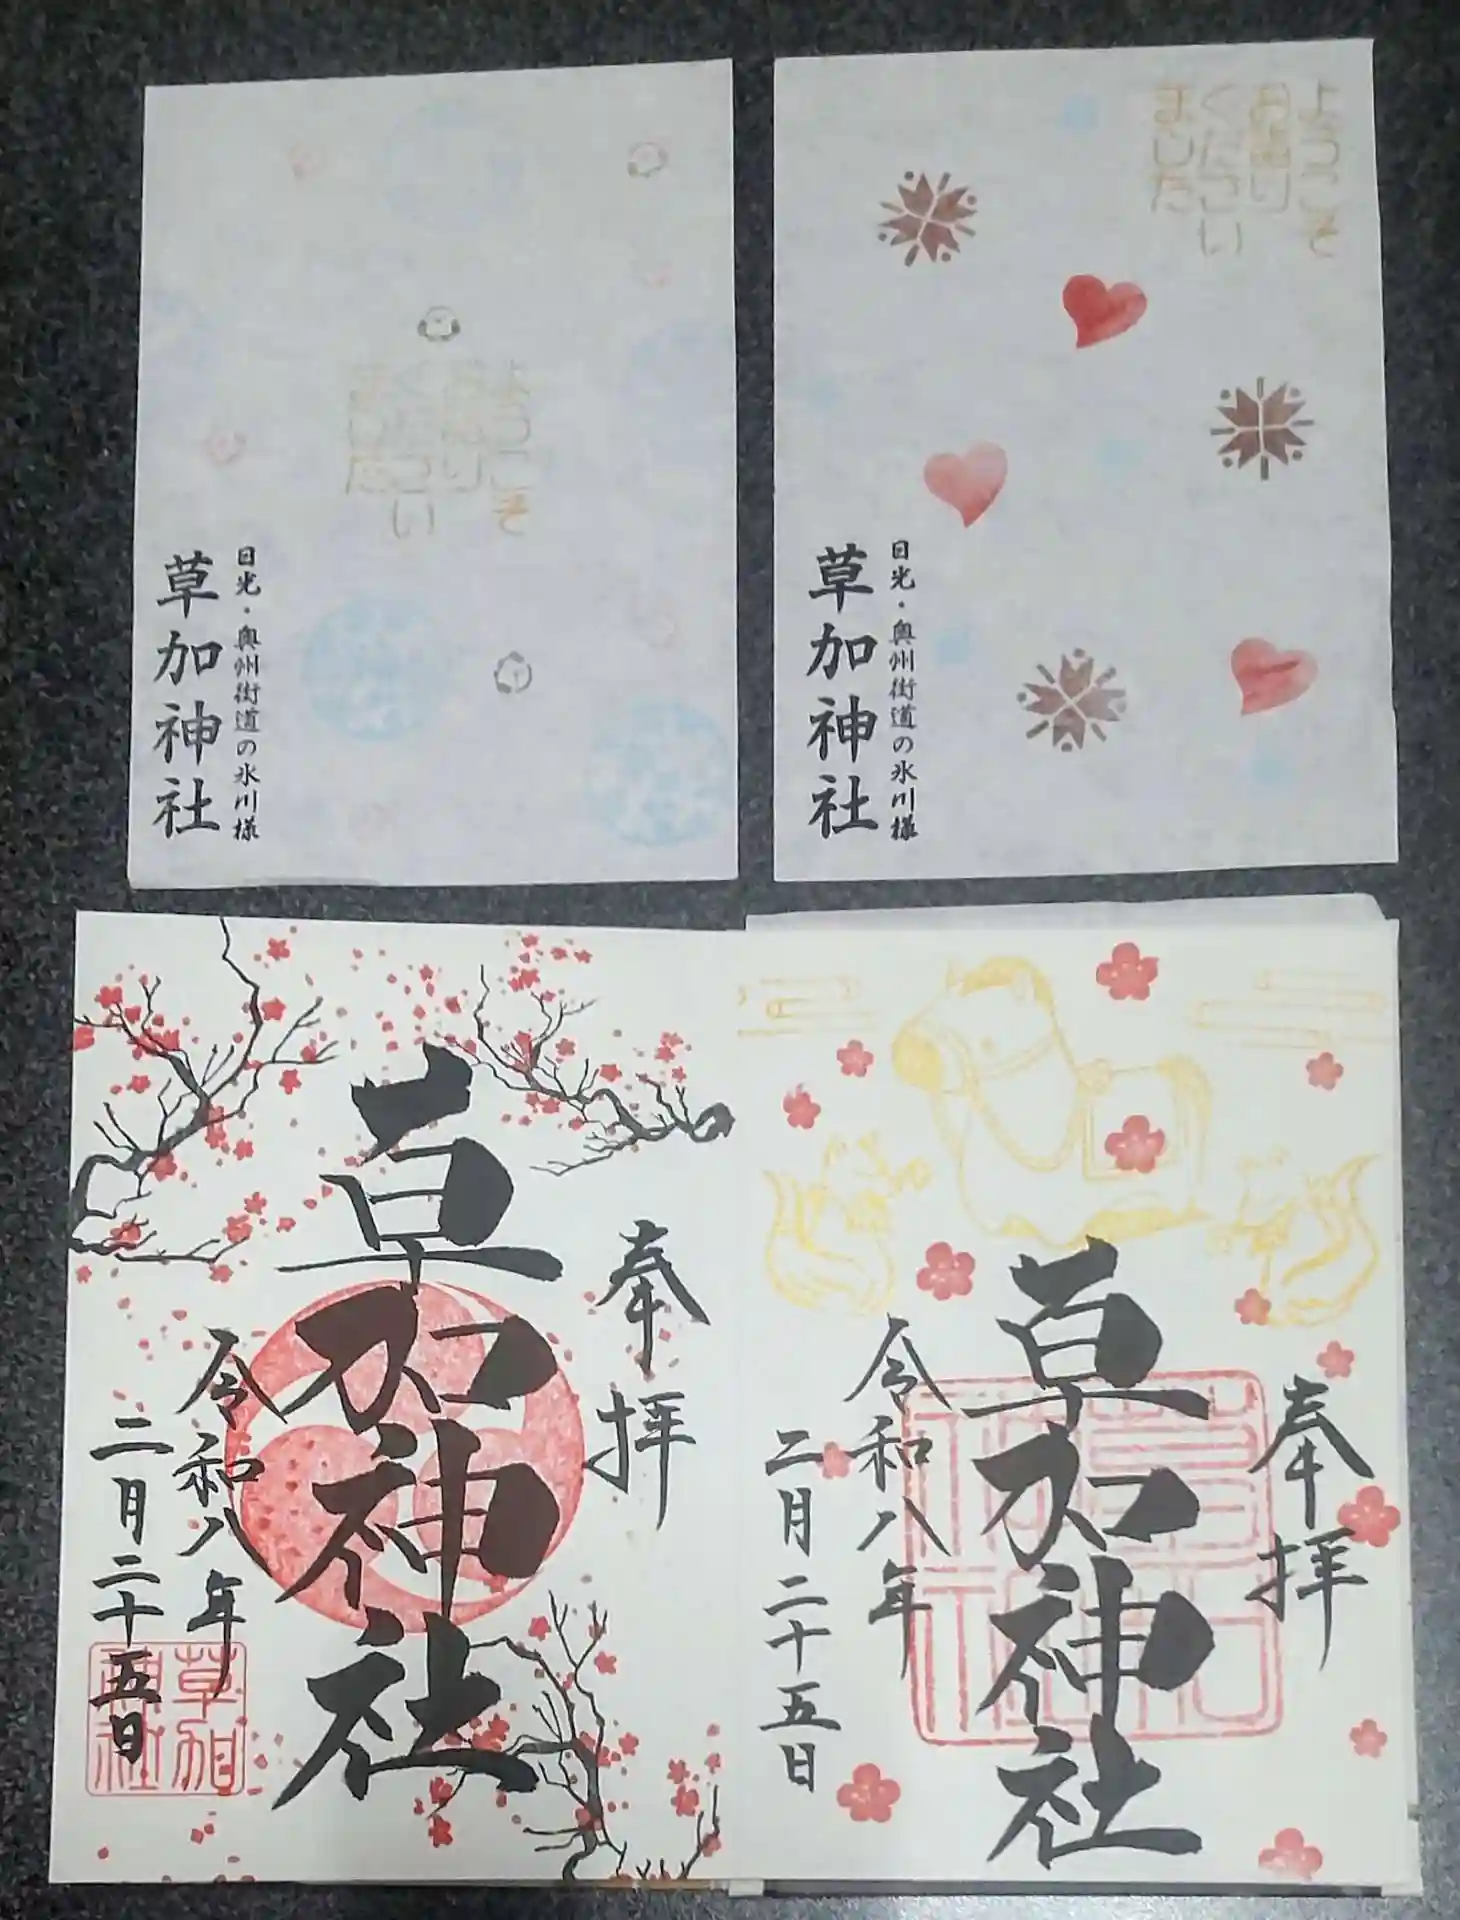 よっこそ
お参り
ください
ました
日光・奥州街道の氷川様
草加神社
よっこそ
お参り
ください
ました
日光・奥州街道の氷川様
草加神社
奉拝
草加神社
令和八年
二月二十五日
草加
神社
奉拝
草加神社
令和八年
二月二十五日